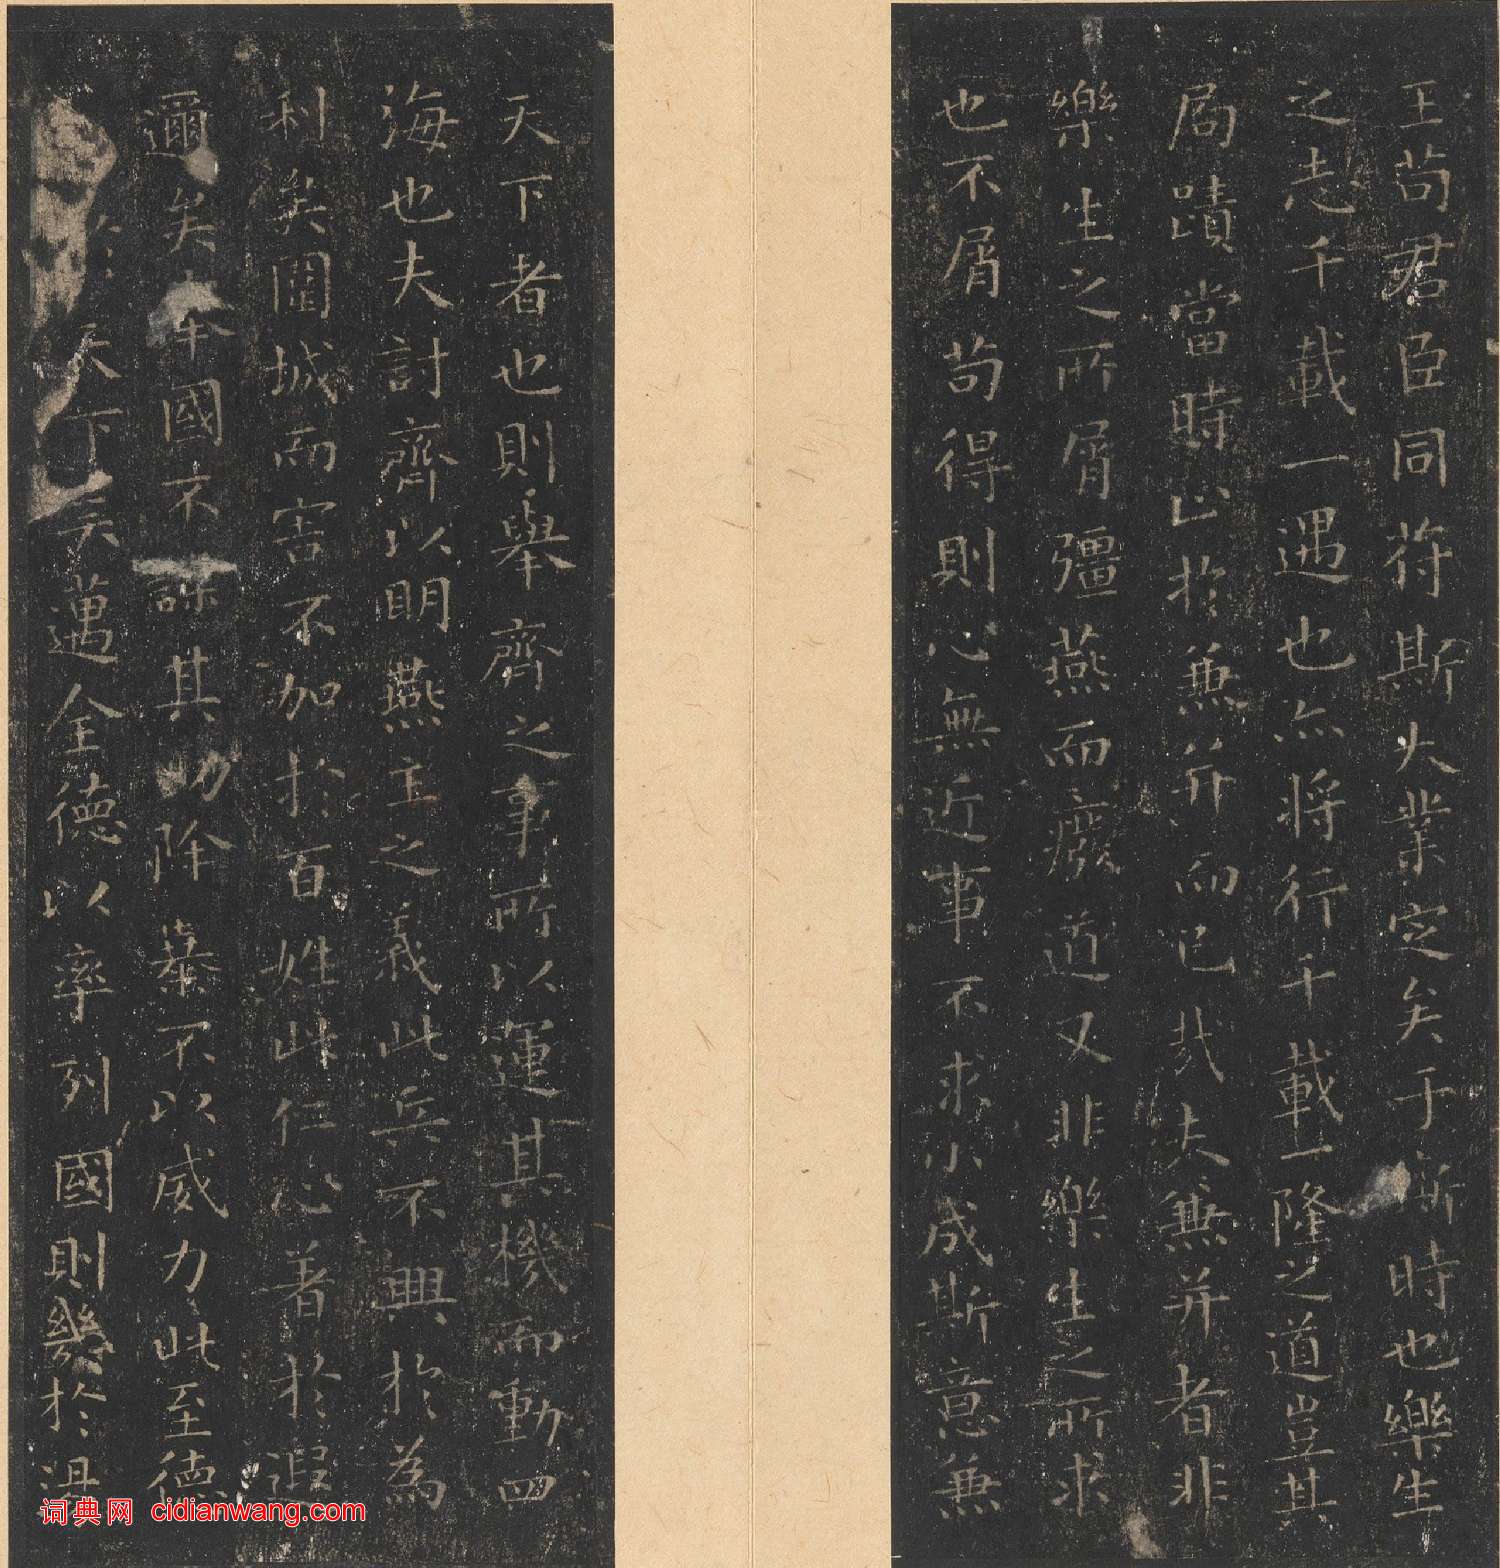 王苟君臣同符斯大業定矣于斯時也樂生
之志千載一遇也亦將行千載一隆之道豈其
局蹟當時止於兼并而已哉夫兼并者非
樂生之所屑彊燕而廢道又非樂生之所求
也不屑苟得則心無近事不求小成斯意兼
天下者也則舉齊之事所以運其機而動四
海也夫討齊以明燕主之義此兵不興於為
利矣圍城而害不加於百姓此仁心著於遐
邇矣舉國不謀其功除暴不以威力此至德
天下矣邁全德以率列國則幾於湯
词典网 cidianwang.com